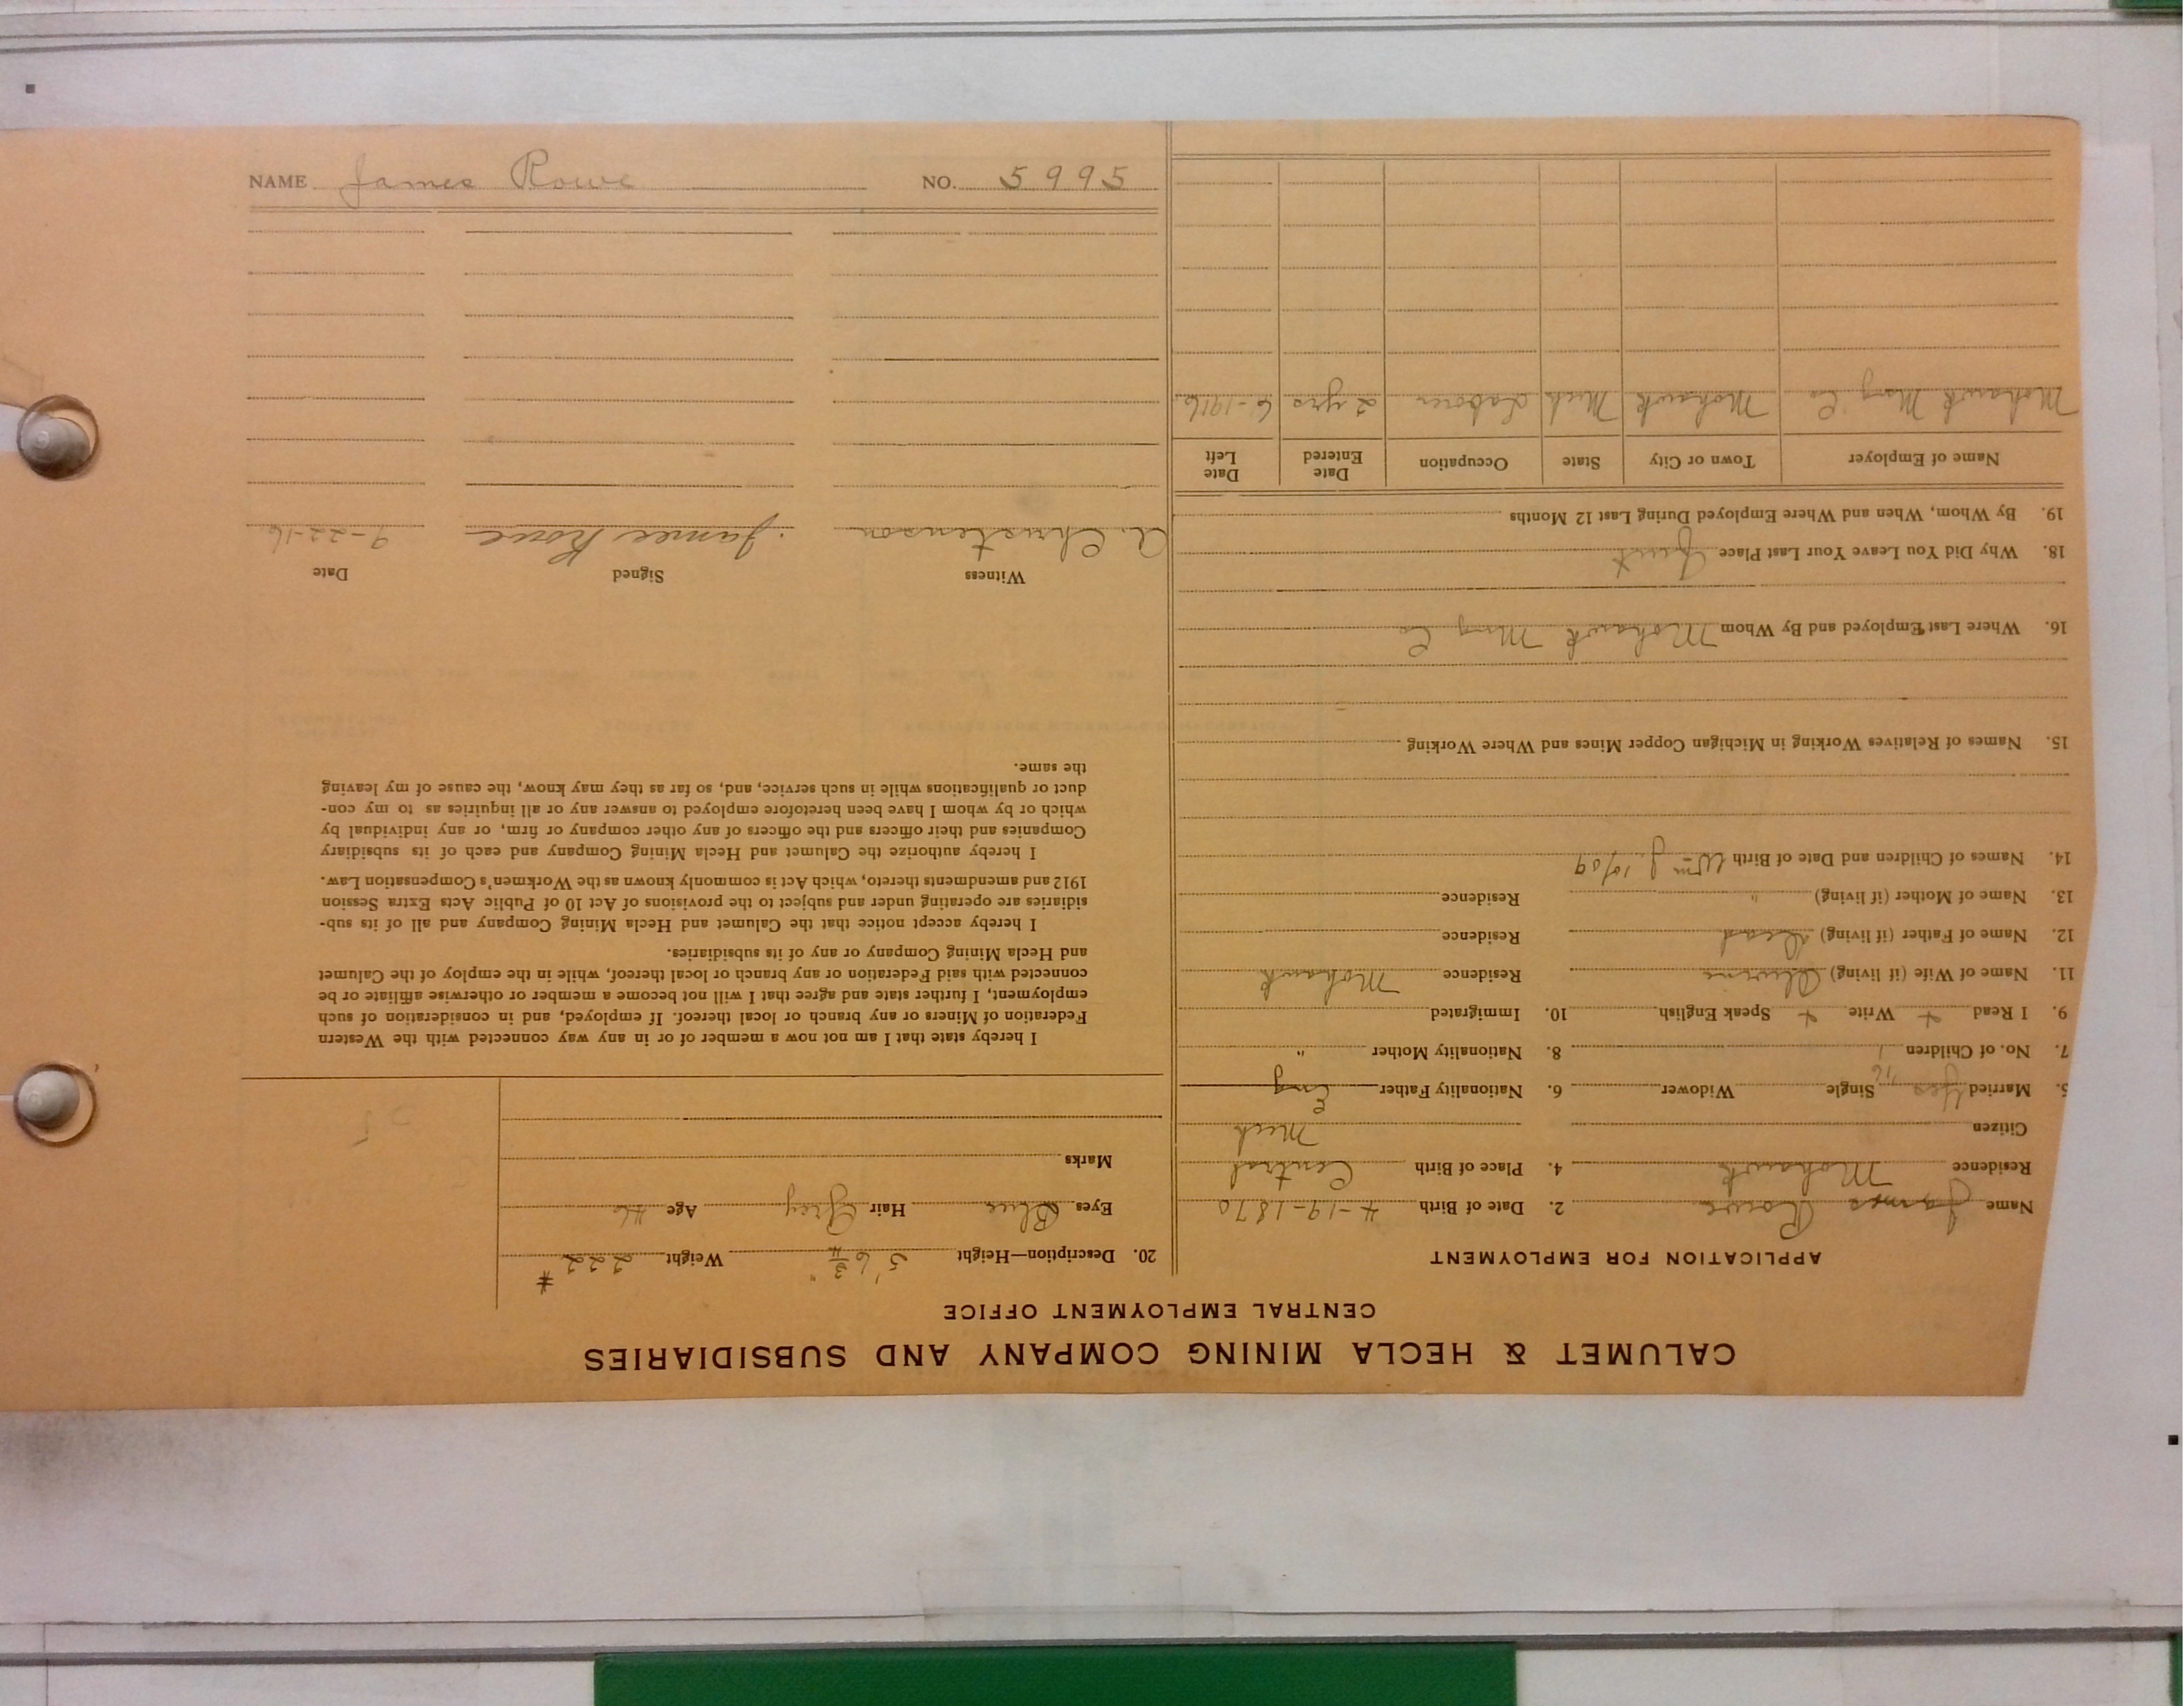 CALUMET & HECLA MINING COMPANY AND SUBSIDIARIES
CENTRAL EMPLOYMENT OFFICE
APPLICATION FOR EMPLOYMENT
Name James Rowe 2. Date of Birth 4-19-1870
Residence Mohawk 4. Place of Birth Central
Citizen Mich
5. Married Yes Single Widower 6. Nationality Father Eng
7. No. of Children 1 8. Nationality Mother "
9. I Read + Write + Speak English 10. Immigrated
11. Name of Wife (if living) Residence Mohawk
12. Name of Father (if living) Dead Residence
13. Name of Mother (if living) " Residence
14. Names of Children and Date of Birth Wm J. 10/09
15. Names of Relatives Working in Michigan Copper Mines and Where Working
16. Where Last Employed and By Whom Mohawk Mng Co
18. Why Did You Leave Your Last Place Quit
19. By Whom, When and Where Employed During Last 12 Months
Name of Employer Town or City State Occupation Date Entered Date Left
Mohawk Mng Co Mohawk Mich Laborer 2 yrs 6-1916
20. Description—Height 5' 6 3/4" Weight 222 #
Eyes Blue Hair Grey Age 46
Marks
I hereby state that I am not now a member of or in any way connected with the Western
Federation of Miners or any branch or local thereof. If employed, and in consideration of such
employment, I further state and agree that I will not become a member or otherwise affiliate or be
connected with said Federation or any branch or local thereof, while in the employ of the Calumet
and Hecla Mining Company or any of its subsidiaries.
I hereby accept notice that the Calumet and Hecla Mining Company and all of its sub-
sidiaries are operating under and subject to the provisions of Act 10 of Public Acts Extra Session
1912 and amendments thereto, which Act is commonly known as the Workmen's Compensation Law.
I hereby authorize the Calumet and Hecla Mining Company and each of its subsidiary
Companies and their officers and the officers of any other company or firm, or any individual by
which or by whom I have been heretofore employed to answer any or all inquiries as to my con-
duct or qualifications while in such service, and, so far as they may know, the cause of my leaving
the same.
Witness Signed Date
A. Christenson James Rowe 9-22-16
NAME James Rowe NO. 5995